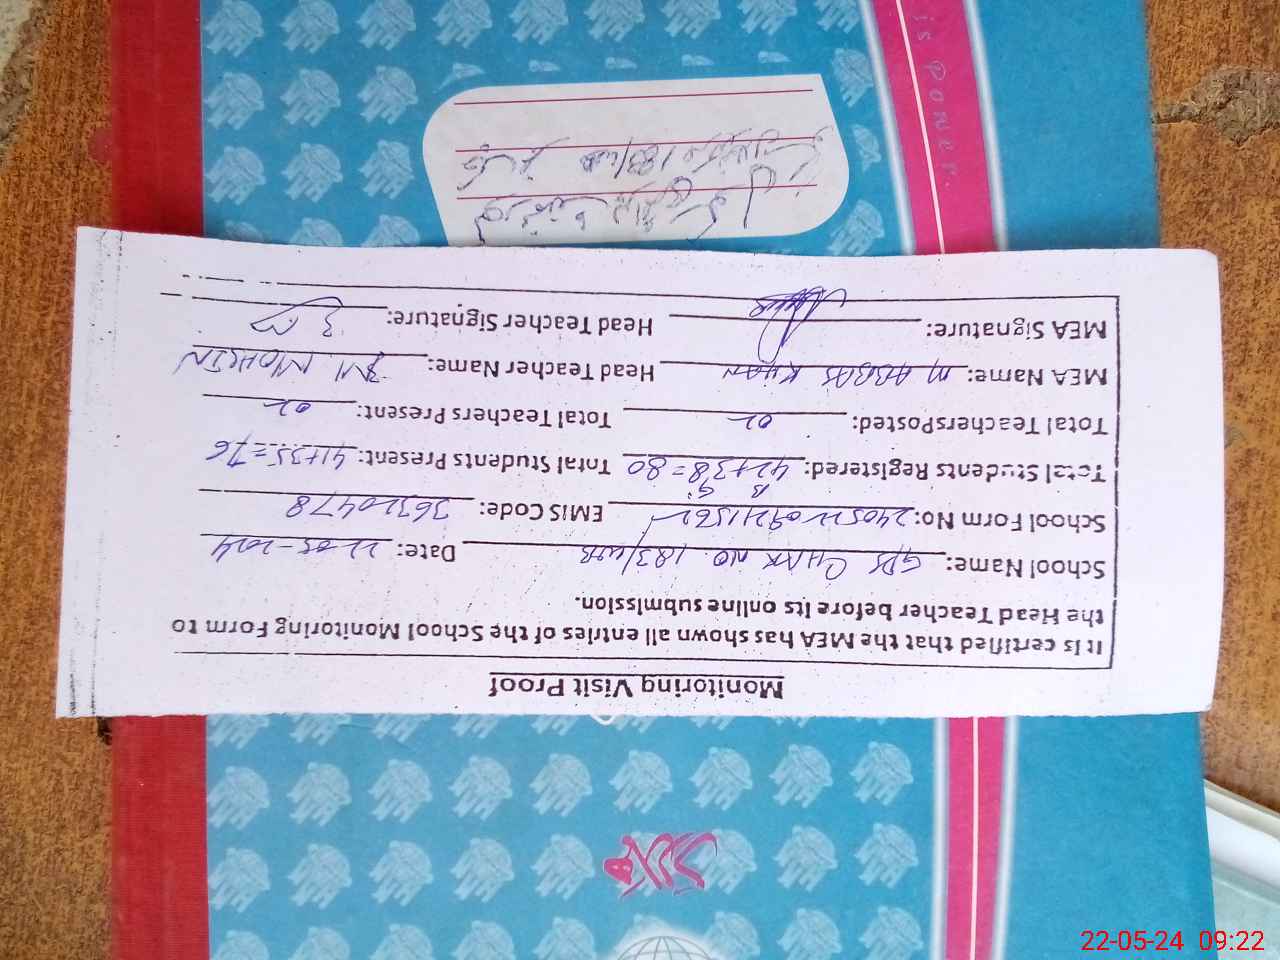 Monitoring Visit Proof
It is certified that the MEA has shown all entries of the School Monitoring Form to
the Head Teacher before its online submission.
School Name: GPS CHAK NO. 183/WB Date: 22-05-2024
School Form No: EMIS Code: 36320478
B G
Total Students Registered: 42+38=80 Total Students Present: 41+35=76
Total TeachersPosted: 02 Total Teachers Present: 02
MEA Name: M ABBAS KHAN Head Teacher Name: MOHSIN
MEA Signature: Head Teacher Signature:
is Power.
22-05-24 09:22